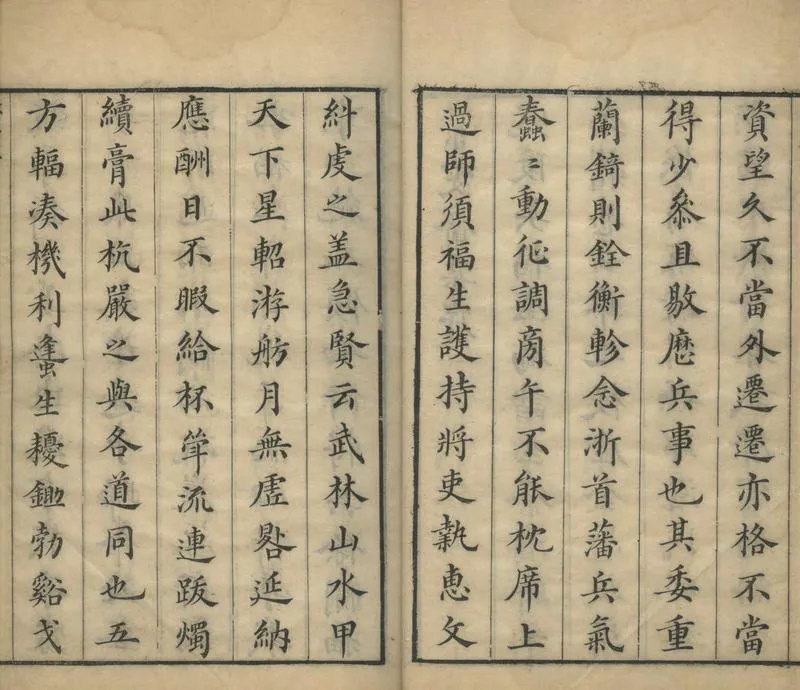 資望久不當外遷遷亦格不當
得少叅且敭厯兵事也其委重
蘭錡則銓衡軫念浙首藩兵氣
蠢〻動征調旁午不能枕席上
過師須福生護持將吏執惠文
糾虔之盖急賢云武林山水甲
天下星軺游舫月無虛晷延納
應酬日不暇給杯流連跋燭
續膏此杭嚴之與各道同也五
方輻凑機利生耰鋤勃谿戈